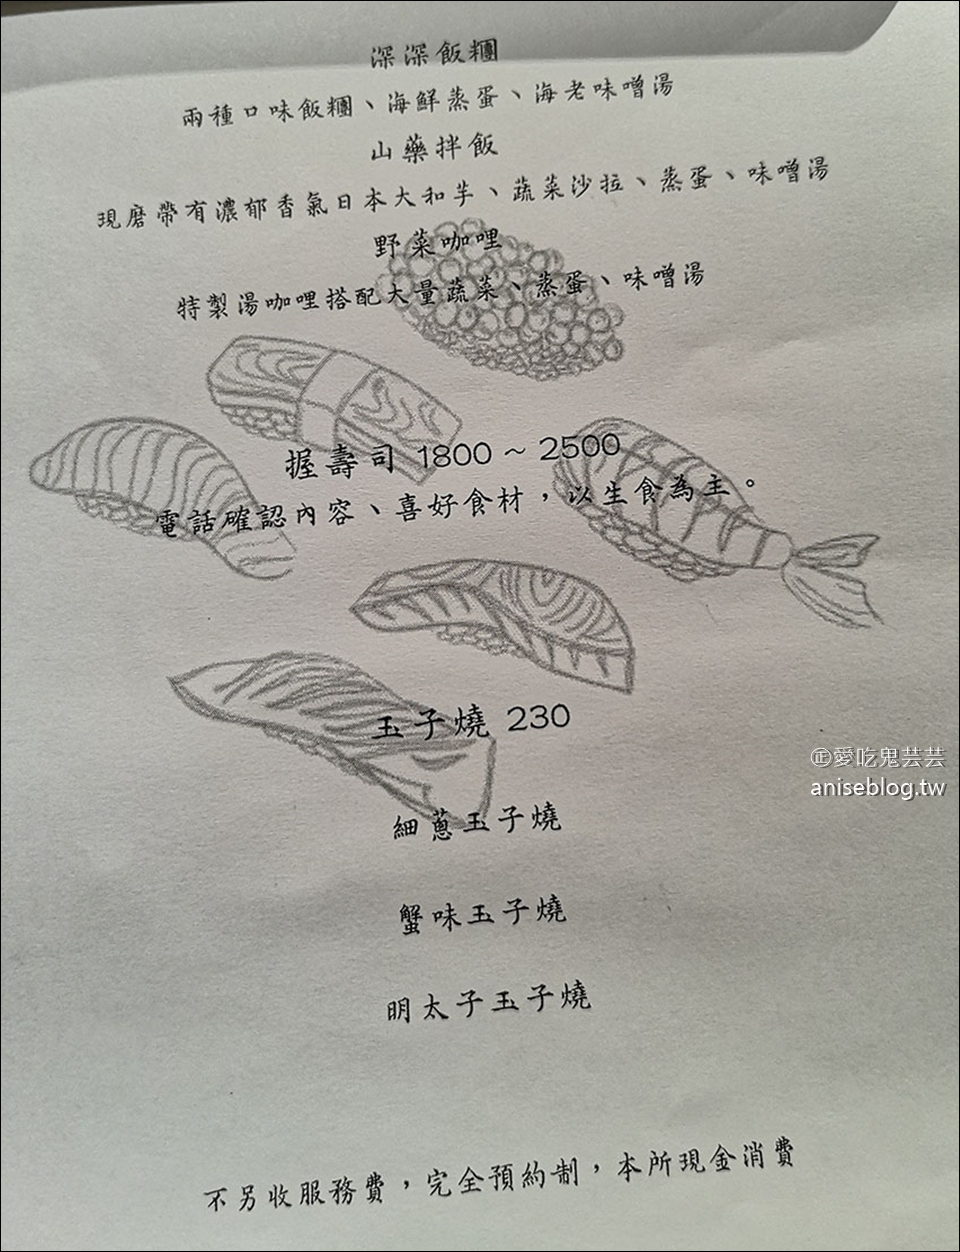 深深飯糰
兩種口味飯糰、海鮮蒸蛋、海老味噌湯
山藥拌飯
現磨帶有濃郁香氣日本大和芋、蔬菜沙拉、蒸蛋、味噌湯
野菜咖哩
特製湯咖哩搭配大量蔬菜、蒸蛋、味噌湯
握壽司 1800 ~ 2500
電話確認內容、喜好食材，以生食為主。
玉子燒 230
㊣愛吃鬼芸芸
aniseblog.tw
細蔥玉子燒
蟹味玉子燒
明太子玉子燒
不另收服務費，完全預約制，本所現金消費